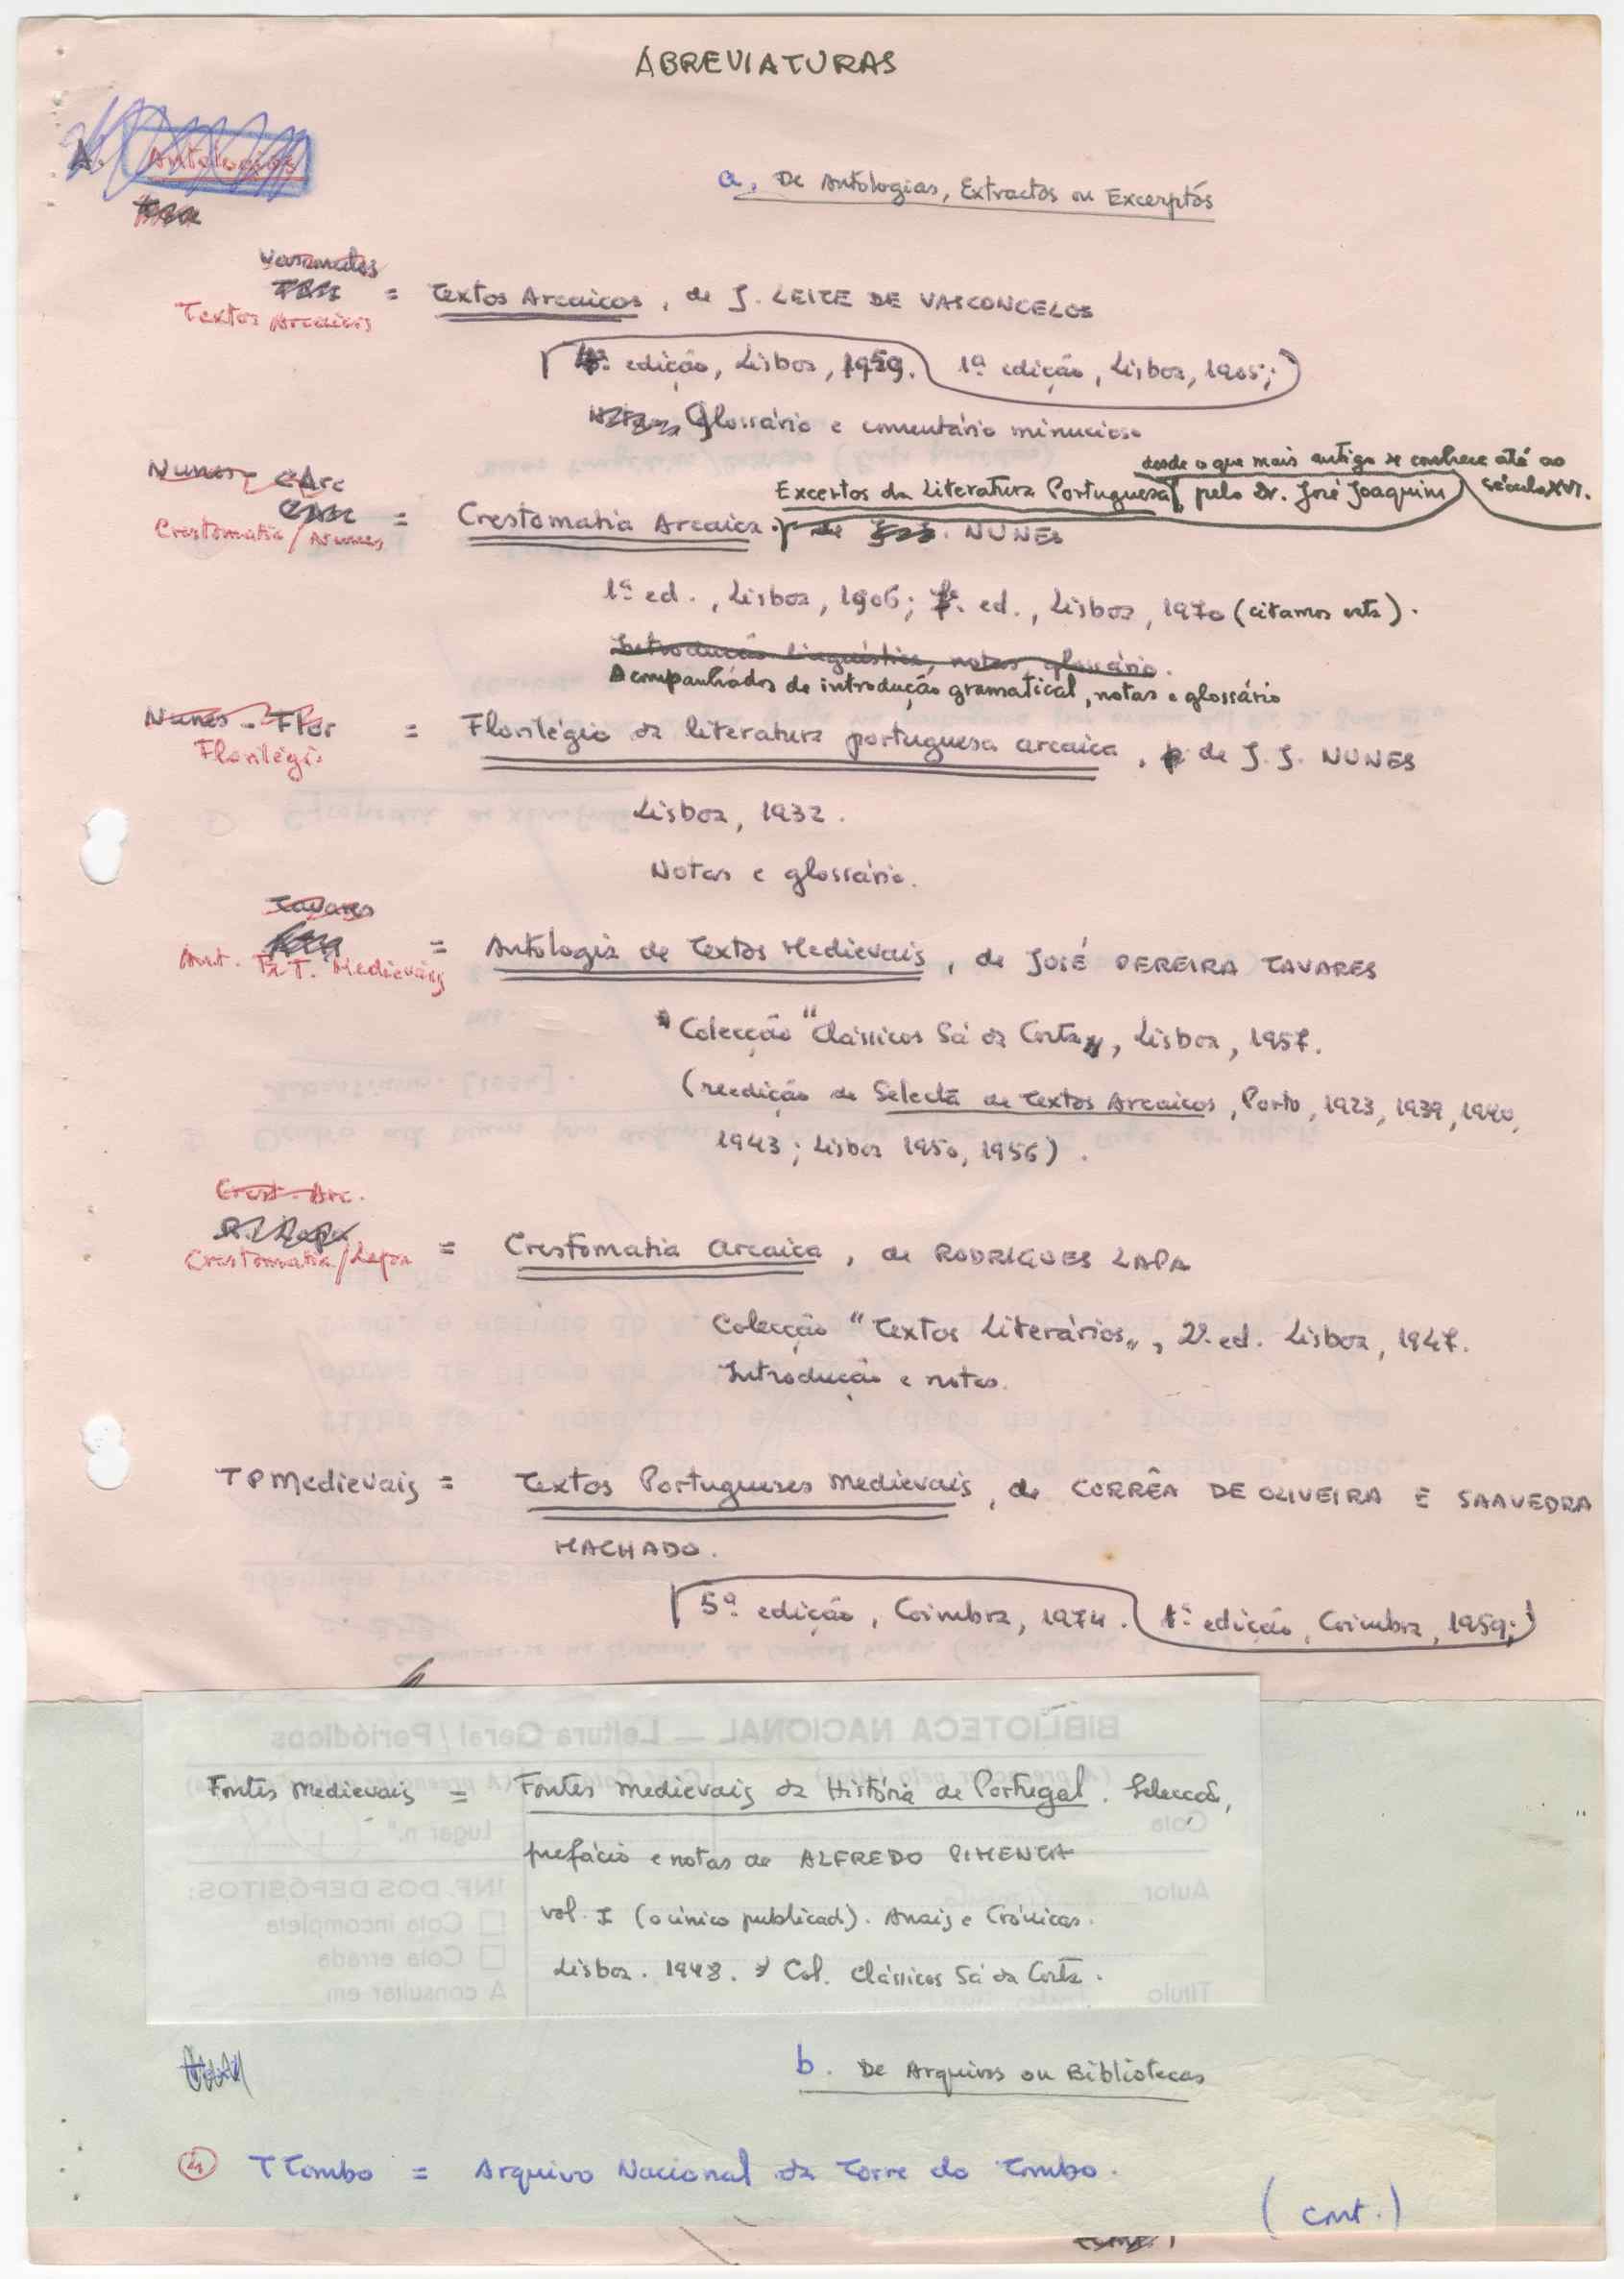 ABREVIATURAS
A. Antologias
a. De Antologias, Extractos ou Excerptos
= Textos Arcaicos, de J. LEITE DE VASCONCELOS
Textos Arcaicos
4ª edição, Lisboa, 1959. 1ª edição, Lisboa, 1905;
Glossário e comentário minucioso
desde o que mais antigo se conhece até ao
Nunes - CArc
Excertos da Literatura Portuguesa, pelo Dr. José Joaquim século XVI.
= Crestomatia Arcaica. de J.J. NUNES
Crestomatia/Nunes
1ª ed., Lisboa, 1906; 7ª. ed., Lisboa, 1970 (citamos esta).
Introdução linguística, notas, glossário.
Acompanhados de introdução gramatical, notas e glossário
Nunes - Flor = Florilégio da literatura portuguesa arcaica, de J. J. NUNES
Florilégio
Lisboa, 1932.
Notas e glossário.
Tavares
= Antologia de Textos Medievais, de JOSÉ PEREIRA TAVARES
Ant. T. Medievais
Colecção "Clássicos Sá da Costa", Lisboa, 1957.
(reedição de Selecta de Textos Arcaicos, Porto, 1923, 1939, 1940,
1943; Lisboa 1950, 1956).
Crest. Arc.
R. Lapa
Crestomatia/Lapa = Crestomatia arcaica, de RODRIGUES LAPA
Colecção "Textos Literários", 2ª. ed. Lisboa, 1947.
Introdução e notas.
TPMedievais = Textos Portugueses Medievais, de CORRÊA DE OLIVEIRA E SAAVEDRA
MACHADO.
5ª edição, Coimbra, 1974. 1ª edição, Coimbra, 1959;
BIBLIOTECA NACIONAL — Leitura Geral/Periódicos
Fontes Medievais = Fontes Medievais da História de Portugal. Selecção,
prefácio e notas de ALFREDO PIMENTA
vol. I (o único publicado). Anais e Crónicas.
Lisboa. 1948. Col. Clássicos Sá da Costa.
Cota
Lugar n.º
Autor
INF. DOS DEPÓSITOS:
Cota incompleta
Cota errada
A consultar em
Título
b. De Arquivos ou Bibliotecas
TTombo = Arquivo Nacional da Torre do Tombo.
(cont.)